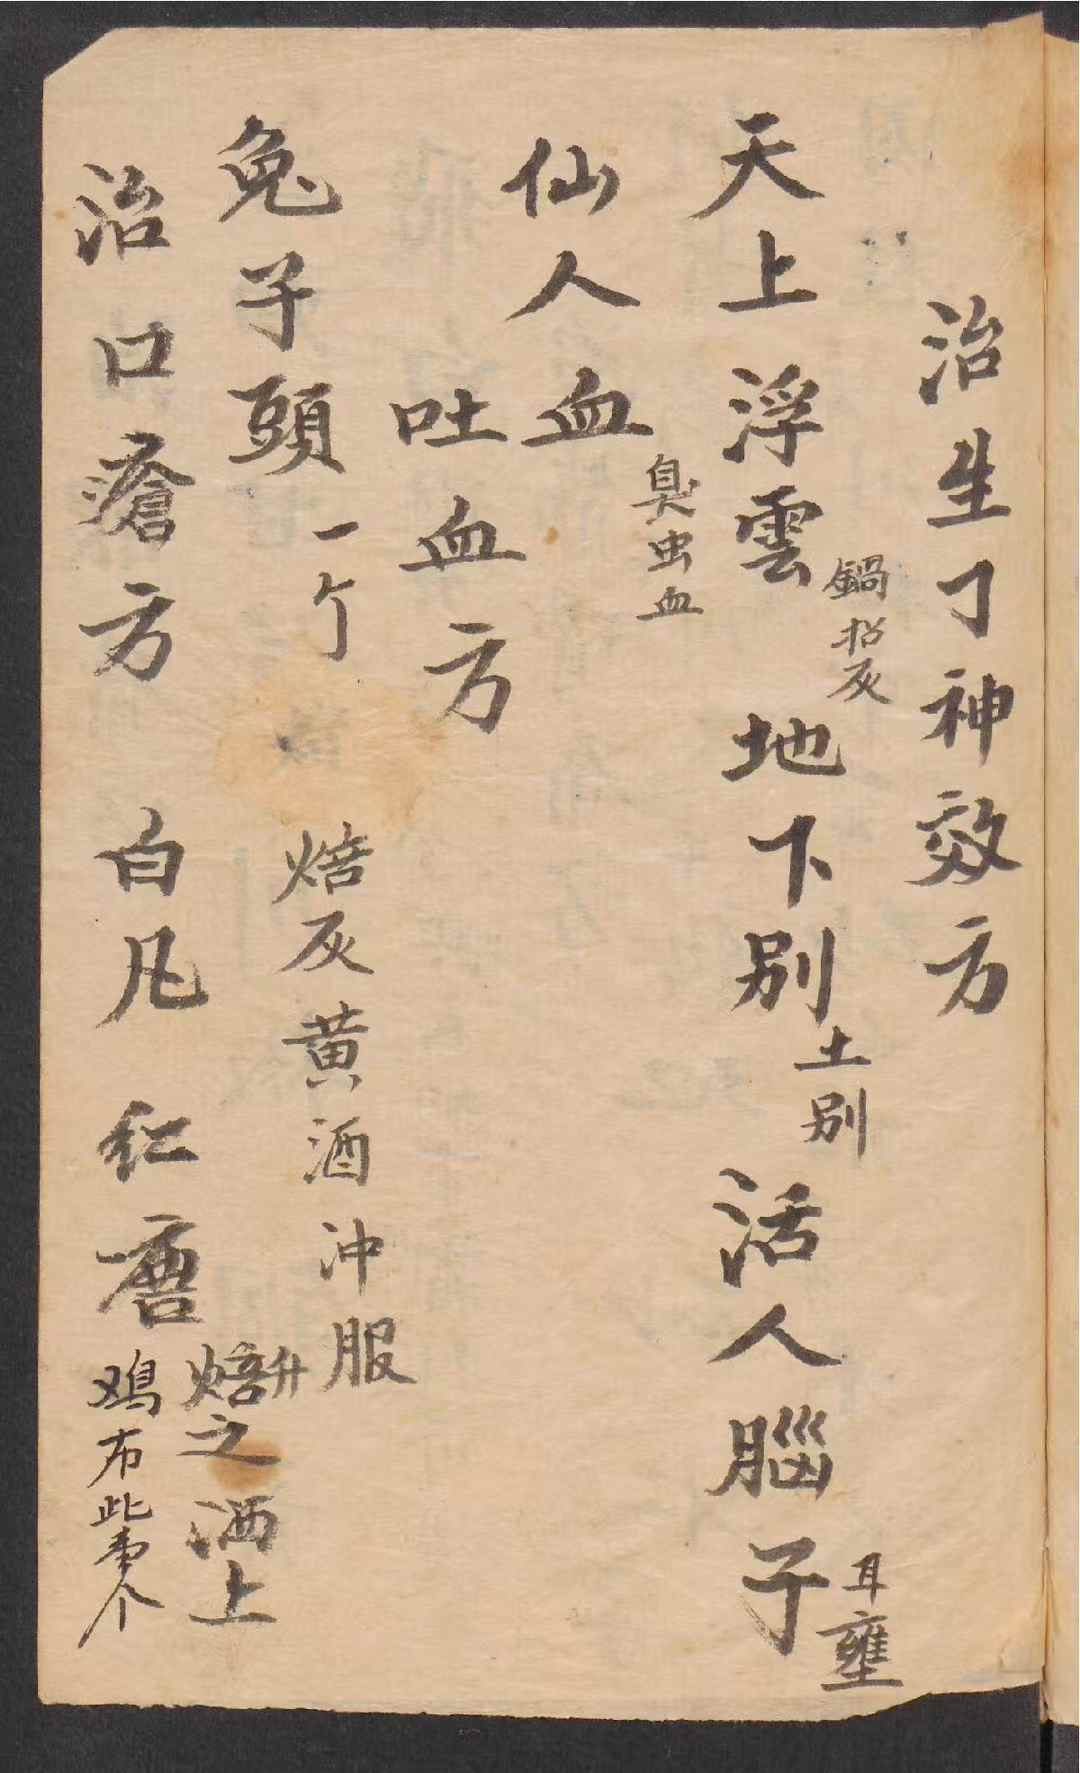 治生丁神效方
天上浮雲 鍋炲灰 地下别 土别 活人腦子 耳壅
仙人血 臭虫血
吐血方
兔子頭一个 焙灰黄酒冲服
治口瘡方 白凡 红唐 焙升之洒上
鸡布此 个